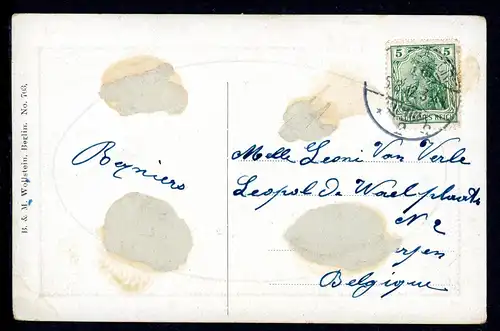 B. & M. Wollstein, Berlin. No. 763.
5 5
DEUTSCHES REICH
Reyniers
Melle Leoni Van Verle
Leopol de Wael plaats
N 2
rpen
Belgique